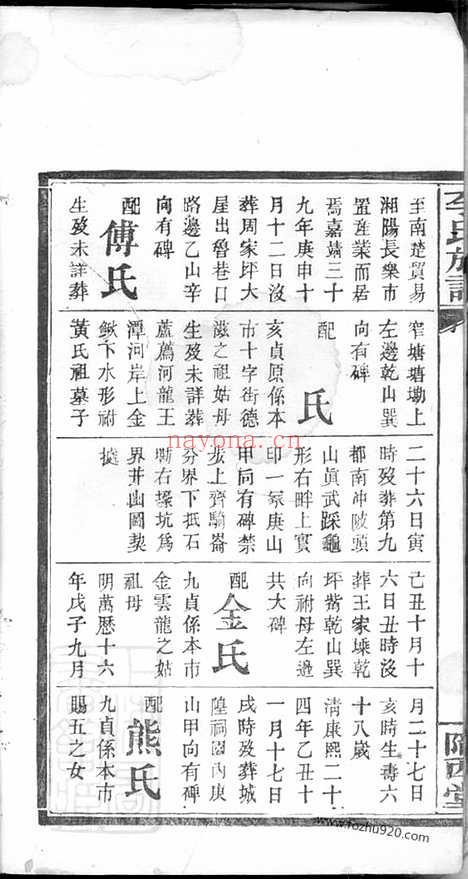 李氏族譜
隴西堂
至南楚貿易
湘陽長樂市
置産業而居
焉嘉靖三十
九年庚申十
月十二日沒
葬周家坪大
屋出魯巷口
路邊乙山辛
向有碑
配傅氏
生歿未詳葬
窄塘塘塝上
左邊乾山巽
向有碑
配 氏
亥貞原係本
市十字街德
滋之祖姑母
生歿未詳葬
蘆薦河龍王
潭河岸上金
鰍下水形祔
黃氏祖墓子
二十六日寅
時歿葬第九
都南冲陂頭
山眞武踩龜
形右畔上實
印一冢庚山
甲向有碑禁
步上齊騎崙
分界下抵石
嘶右 坑爲
界幷幽圖契
據
己丑十月十
六日丑時沒
葬王家堁乾
坪觜乾山巽
向祔母左邊
共大碑
配金氏
九貞係本市
金雲龍之姑
祖母
明萬歷十六
年戊子九月
月二十七日
亥時生壽六
十八歲
淸康熙二十
四年乙丑十
一月十七日
戌時歿葬城
隍祠園內庚
山甲向有碑
配熊氏
九貞係本市
賜五之女
nayona.cn
www.fozhu920.com